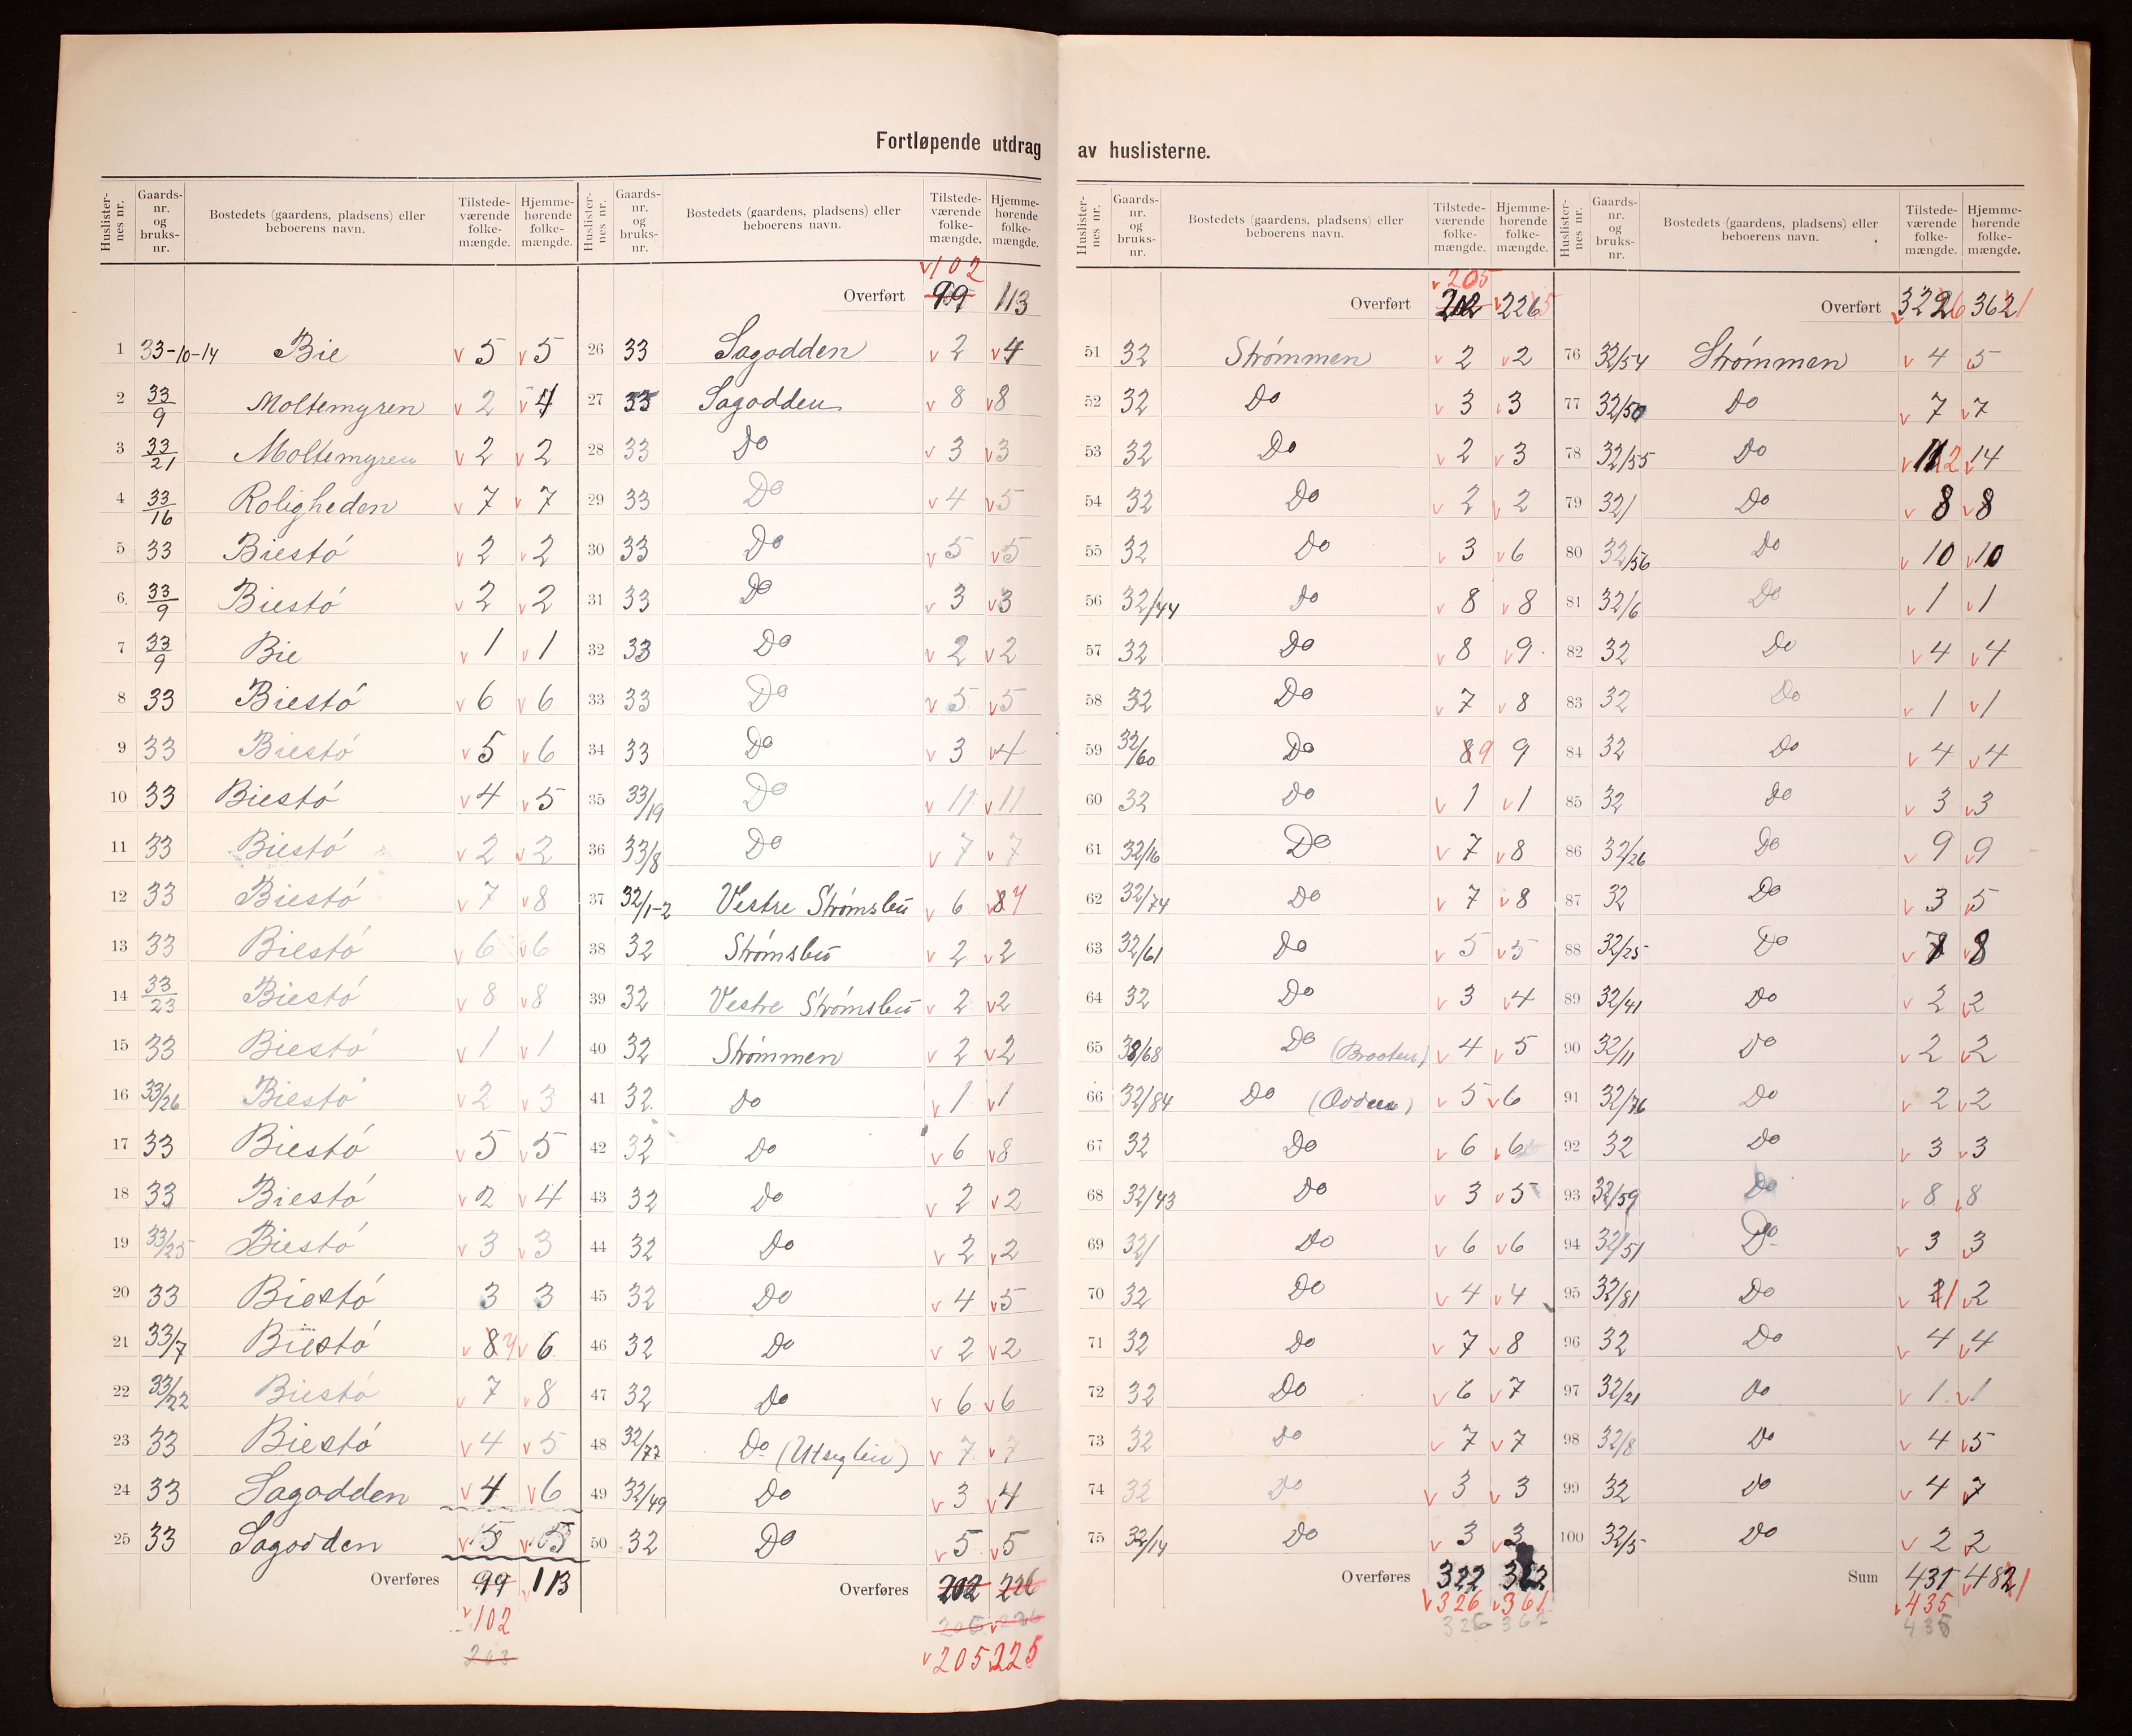 Fortløpende utdrag av huslisterne.
Huslister-nes nr. | Gaards-nr. og bruks-nr. | Bostedets (gaardens, pladsens) eller beboerens navn. | Tilstede-værende folke-mængde. | Hjemme-hørende folke-mængde.
1 33-10-14 Bie 5 5
2 33/9 Moltemyren 2 4
3 33/21 Moltemyren 2 2
4 33/16 Roligheden 7 7
5 33 Biestó 2 2
6. 33/9 Biestó 2 2
7 33/9 Bie 1 1
8 33 Biestó 6 6
9 33 Biestó 5 6
10 33 Biestó 4 5
11 33 Biestó 2 2
12 33 Biestó 7 8
13 33 Biestó 6 6
14 33/23 Biestó 8 8
15 33 Biestó 1 1
16 33/26 Biestó 2 3
17 33 Biestó 5 5
18 33 Biestó 2 4
19 33/25 Biestó 3 3
20 33 Biestó 3 3
21 33/7 Biestó 8 6
22 33/22 Biestó 7 8
23 33 Biestó 4 5
24 33 Sagodden 4 6
25 33 Sagodden 5 5
Overføres 99 113
102
203
Huslister-nes nr. | Gaards-nr. og bruks-nr. | Bostedets (gaardens, pladsens) eller beboerens navn. | Tilstede-værende folke-mængde. | Hjemme-hørende folke-mængde.
102
Overført 99 113
26 33 Sagodden 2 4
27 33 Sagodden 8 8
28 33 Do 3 3
29 33 Do 4 5
30 33 Do 5 5
31 33 Do 3 3
32 33 Do 2 2
33 33 Do 5 5
34 33 Do 3 4
35 33/19 Do 11 11
36 33/8 Do 7 7
37 32/1-2 Vestre Strómsbu 6 8
38 32 Strómsbu 2 2
39 32 Vestre Strómsbu 2 2
40 32 Strómmen 2 2
41 32 Do 1 1
42 32 Do 6 8
43 32 Do 2 2
44 32 Do 2 2
45 32 Do 4 5
46 32 Do 2 2
47 32 Do 6 6
48 32/77 Do 7 7
49 32/49 Do 3 4
50 32 Do 5 5
Overføres 202 226
205 225
Huslister-nes nr. | Gaards-nr. og bruks-nr. | Bostedets (gaardens, pladsens) eller beboerens navn. | Tilstede-værende folke-mængde. | Hjemme-hørende folke-mængde.
205
Overført 202 226 5
51 32 Strómmen 2 2
52 32 Do 3 3
53 32 Do 2 3
54 32 Do 2 2
55 32 Do 3 6
56 32/44 Do 8 8
57 32 Do 8 9
58 32 Do 7 8
59 32/60 Do 8 9 9
60 32 Do 1 1
61 32/16 Do 7 8
62 32/74 Do 7 8
63 32/61 Do 5 5
64 32 Do 3 4
65 /68 Do (Brooten) 4 5
66 32/84 Do (Odden) 5 6
67 32 Do 6 6
68 32/43 Do 3 5
69 32/ Do 6 6
70 32 Do 4 4
71 32 Do 7 8
72 32 Do 6 7
73 32 Do 7 7
74 32 Do 3 3
75 32/14 Do 3 3
Overføres 322 362
326 361
326 362
Huslister-nes nr. | Gaards-nr. og bruks-nr. | Bostedets (gaardens, pladsens) eller beboerens navn. | Tilstede-værende folke-mængde. | Hjemme-hørende folke-mængde.
Overført 322 6 362 1
76 32/54 Strómmen 4 5
77 32/50 Do 7 7
78 32/55 Do 11 2 14
79 32/ Do 8 8
80 32/56 Do 10 10
81 32/6 Do 1 1
82 32 Do 4 4
83 32 Do 1 1
84 32 Do 4 4
85 32 Do 3 3
86 32/26 Do 9 9
87 32 Do 3 5
88 32/25 Do 8
89 32/41 Do 2 2
90 32/11 Do 2 2
91 32/76 Do 2 2
92 32 Do 3 3
93 32/59 Do 8 8
94 32/51 Do 3 3
95 32/81 Do 2 1 2
96 32 Do 4 4
97 32/21 Do 1 1
98 32/8 Do 4 5
99 32 Do 4 7
100 32/5 Do 2 2
Sum 431 482 1
435
435